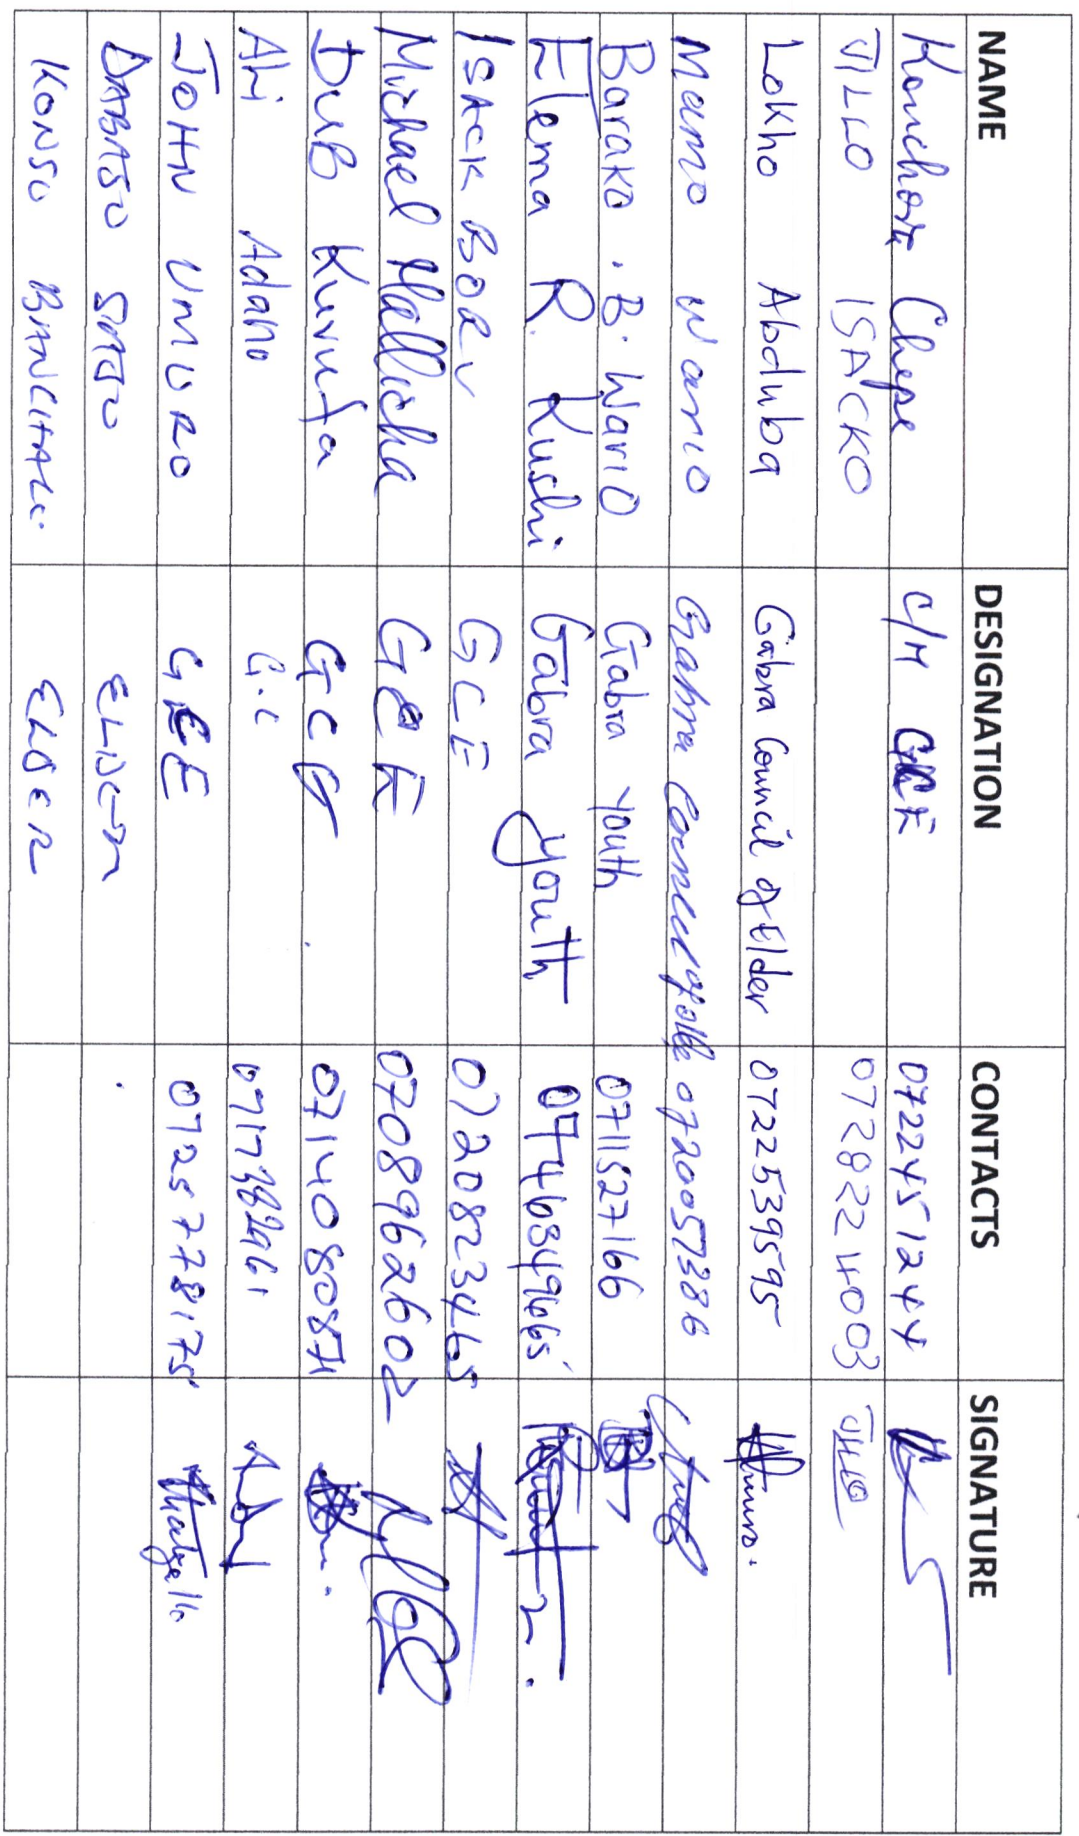 NAME DESIGNATION CONTACTS SIGNATURE
Konchora Chepe C/M GCE 0722451244
JILLO ISACKO 0728224003 Jillo
Lokho Abduba Gabra Council of Elder 0722539595
Mamo Wario Gabra Council of elde 0720057386
Barako . B. Wario Gabra Youth 0711527166
Elema R. Kushi Gabra youth
ISACK BORU GCE 0720823465
Michael Mallicha GCE 0708962602
DUB Kurufa GCE 0714080871
Ali Adano G.C
JOHN UMURO GCE 0725778175
DABASO ELDER
KONSO ELDER